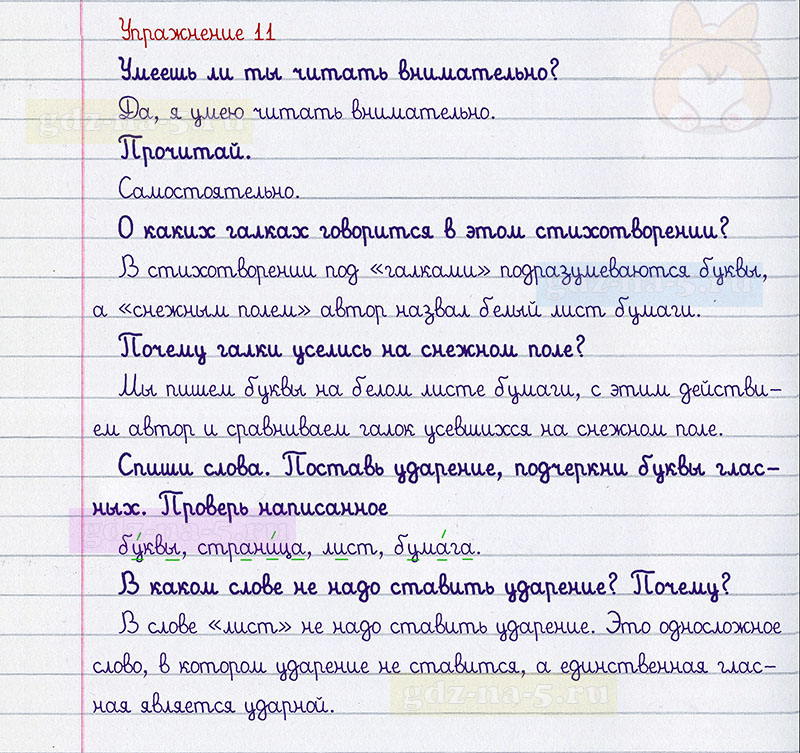 Упражнение 11
Умеешь ли ты читать внимательно?
Да, я умею читать внимательно.
gdz-na-5.ru
Прочитай.
Самостоятельно.
О каких галках говорится в этом стихотворении?
В стихотворении под «галками» подразумеваются буквы,
gdz-na-5.ru
а «снежным полем» автор назвал белый лист бумаги.
Почему галки уселись на снежном поле?
Мы пишем буквы на белом листе бумаги, с этим действи-
ем автор и сравниваем галок усевшихся на снежном поле.
Спиши слова. Поставь ударение, подчеркни буквы глас-
ных. Проверь написанное
gdz-na-5.ru
бу́квы, страни́ца, лист, бума́га.
В каком слове не надо ставить ударение? Почему?
В слове «лист» не надо ставить ударение. Это односложное
слово, в котором ударение не ставится, а единственная глас-
ная является ударной.
gdz-na-5.ru